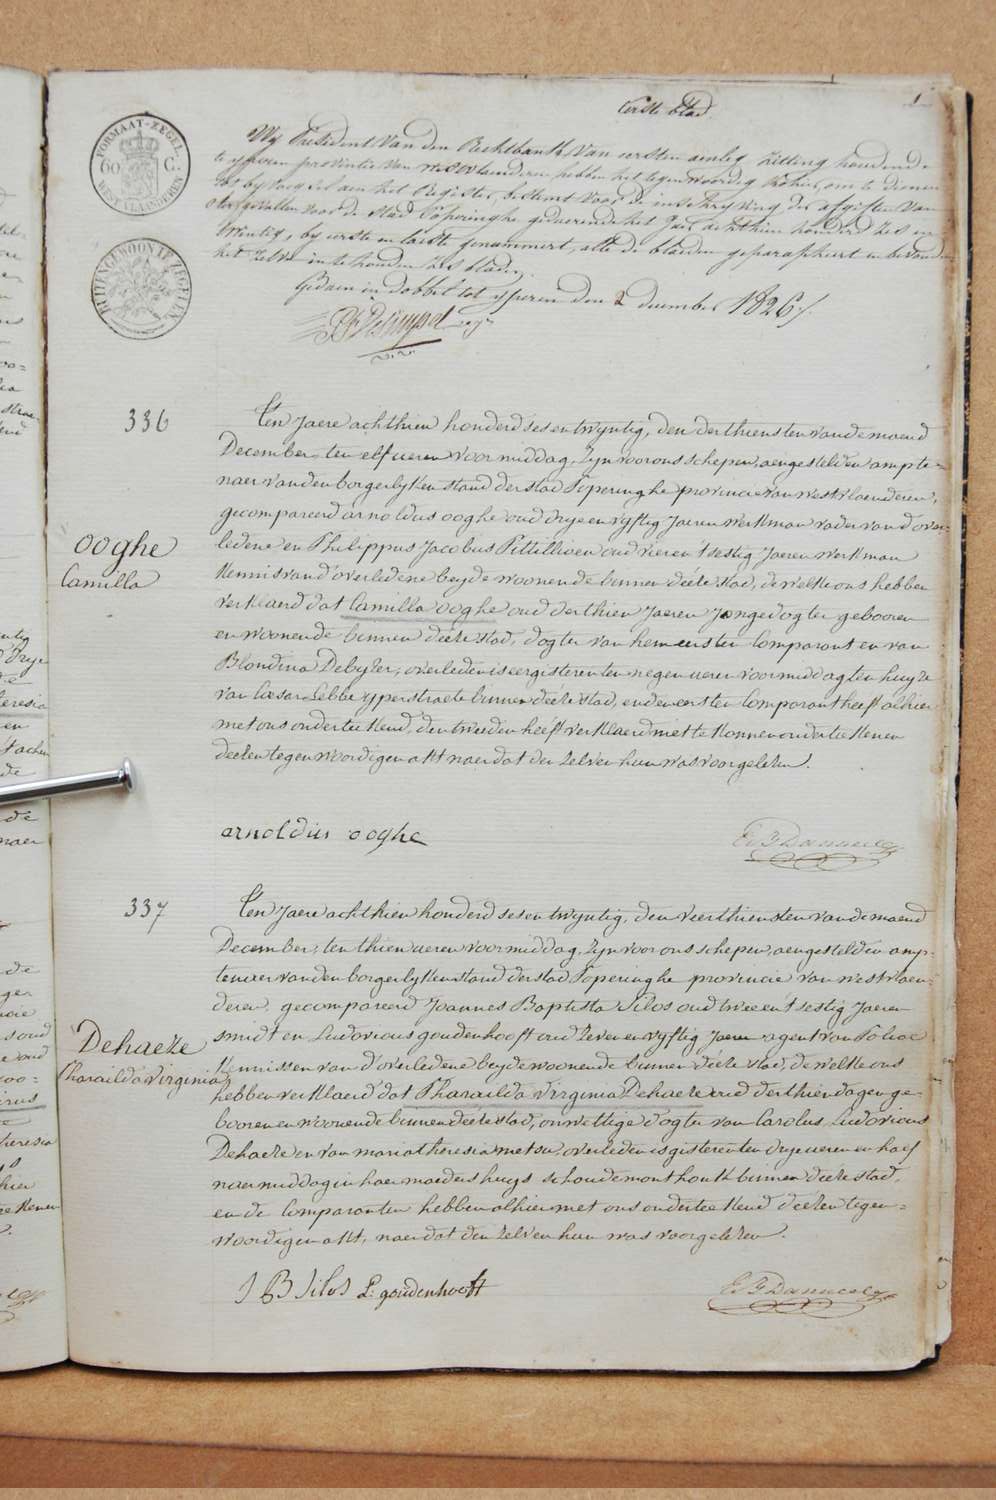 1
Eerste blad
FORMAAT-ZEGEL
60 C.
WESTVLAANDEREN
Wij President Van den Rechtbank Van eersten aenleg, Zitting houdende
te ijperen provintie Van Westvlaenderen hebben het tegenwoordig Kohier, om te dienen
tot byvoegsel aen het Register, bestemt voor de inschryving der afgiften van
sterfgevallen voor de Stad Poperinghe geduerende het Jaer achthien honderd Zes en
twintig, by eerste en laeste genummert, alle de bladen geparapheert en bevonden
het Zelve in te houden Zes bladen.
Gedaen in dobbel tot ijperen den 2 december 1826 /.
BUITENGEWOON TE ZEGELEN
336
ooghe
Camilla
Ten Jaere achthien honderd ses en twyntig, den derthiensten van de maend
December, ten elf ueren voormiddag, Zyn voor ons schepen, aengestelden ampte-
naer van den borgerlyken stand der stad Poperinghe provincie van westvlaenderen,
gecompareerd arnoldus ooghe oud drye en vyftig Jaeren werkman vader van d'over-
ledene en Philippus Jacobus Pittillioen oud vier en t'sestig Jaeren werkman
Kennis van d'overledene beyde woonende binnen deéze stad, de welke ons hebben
verklaerd dat Camilla ooghe oud derthien Jaeren Jongedogter gebooren
en woonende binnen deéze stad, dogter van hem eersten Comparant en van
Blondina Debyser, overleden is eergisteren ten negen ueren voormiddag ten huyze
van Cæsar Lebbe yperstraete binnen deéze stad, en den eersten Comparant heeft alhier
met ons onderteekend, den tweeden heéft verklaerd niet te konnen onderteekenen
deezen tegenwoordigen akt naer dat den zelven hun was voorgelezen.
arnoldus ooghe
337
Dehaeze
Pharaïlda Virginia
Ten Jaere achthien honderd ses en twyntig, den veerthiensten van de maend
December, ten thien ueren voormiddag, Zyn voor ons schepen, aengestelden amp-
tenaer van den borgerlyken stand der stad Poperinghe provincie van westvlaen-
deren, gecompareerd Joannes Baptista Silos oud twee en t'sestig Jaeren
smidt en Ludovicus goudenhooft oud Zeven en vyftig Jaeren agent van Policie
Kennissen van d'overledene beyde woonende binnen deéze stad, de welke ons
hebben verklaerd dat Pharaïlda virginia Dehaeze oud derthien dagen ge-
booren en woonende binnen deéze stad, onwettige dogter van Carolus Ludovicus
Dehaeze en van maria theresia metsu, overleden is gisteren ten drye ueren en half
naermiddag in haer moeders huys schoudemonthoek binnen deéze stad,
en de Comparanten hebben alhier met ons onderteekend deezen tegen-
woordigen akt, naer dat den zelven hun was voorgelezen.
J B Silos L: goudenhooft